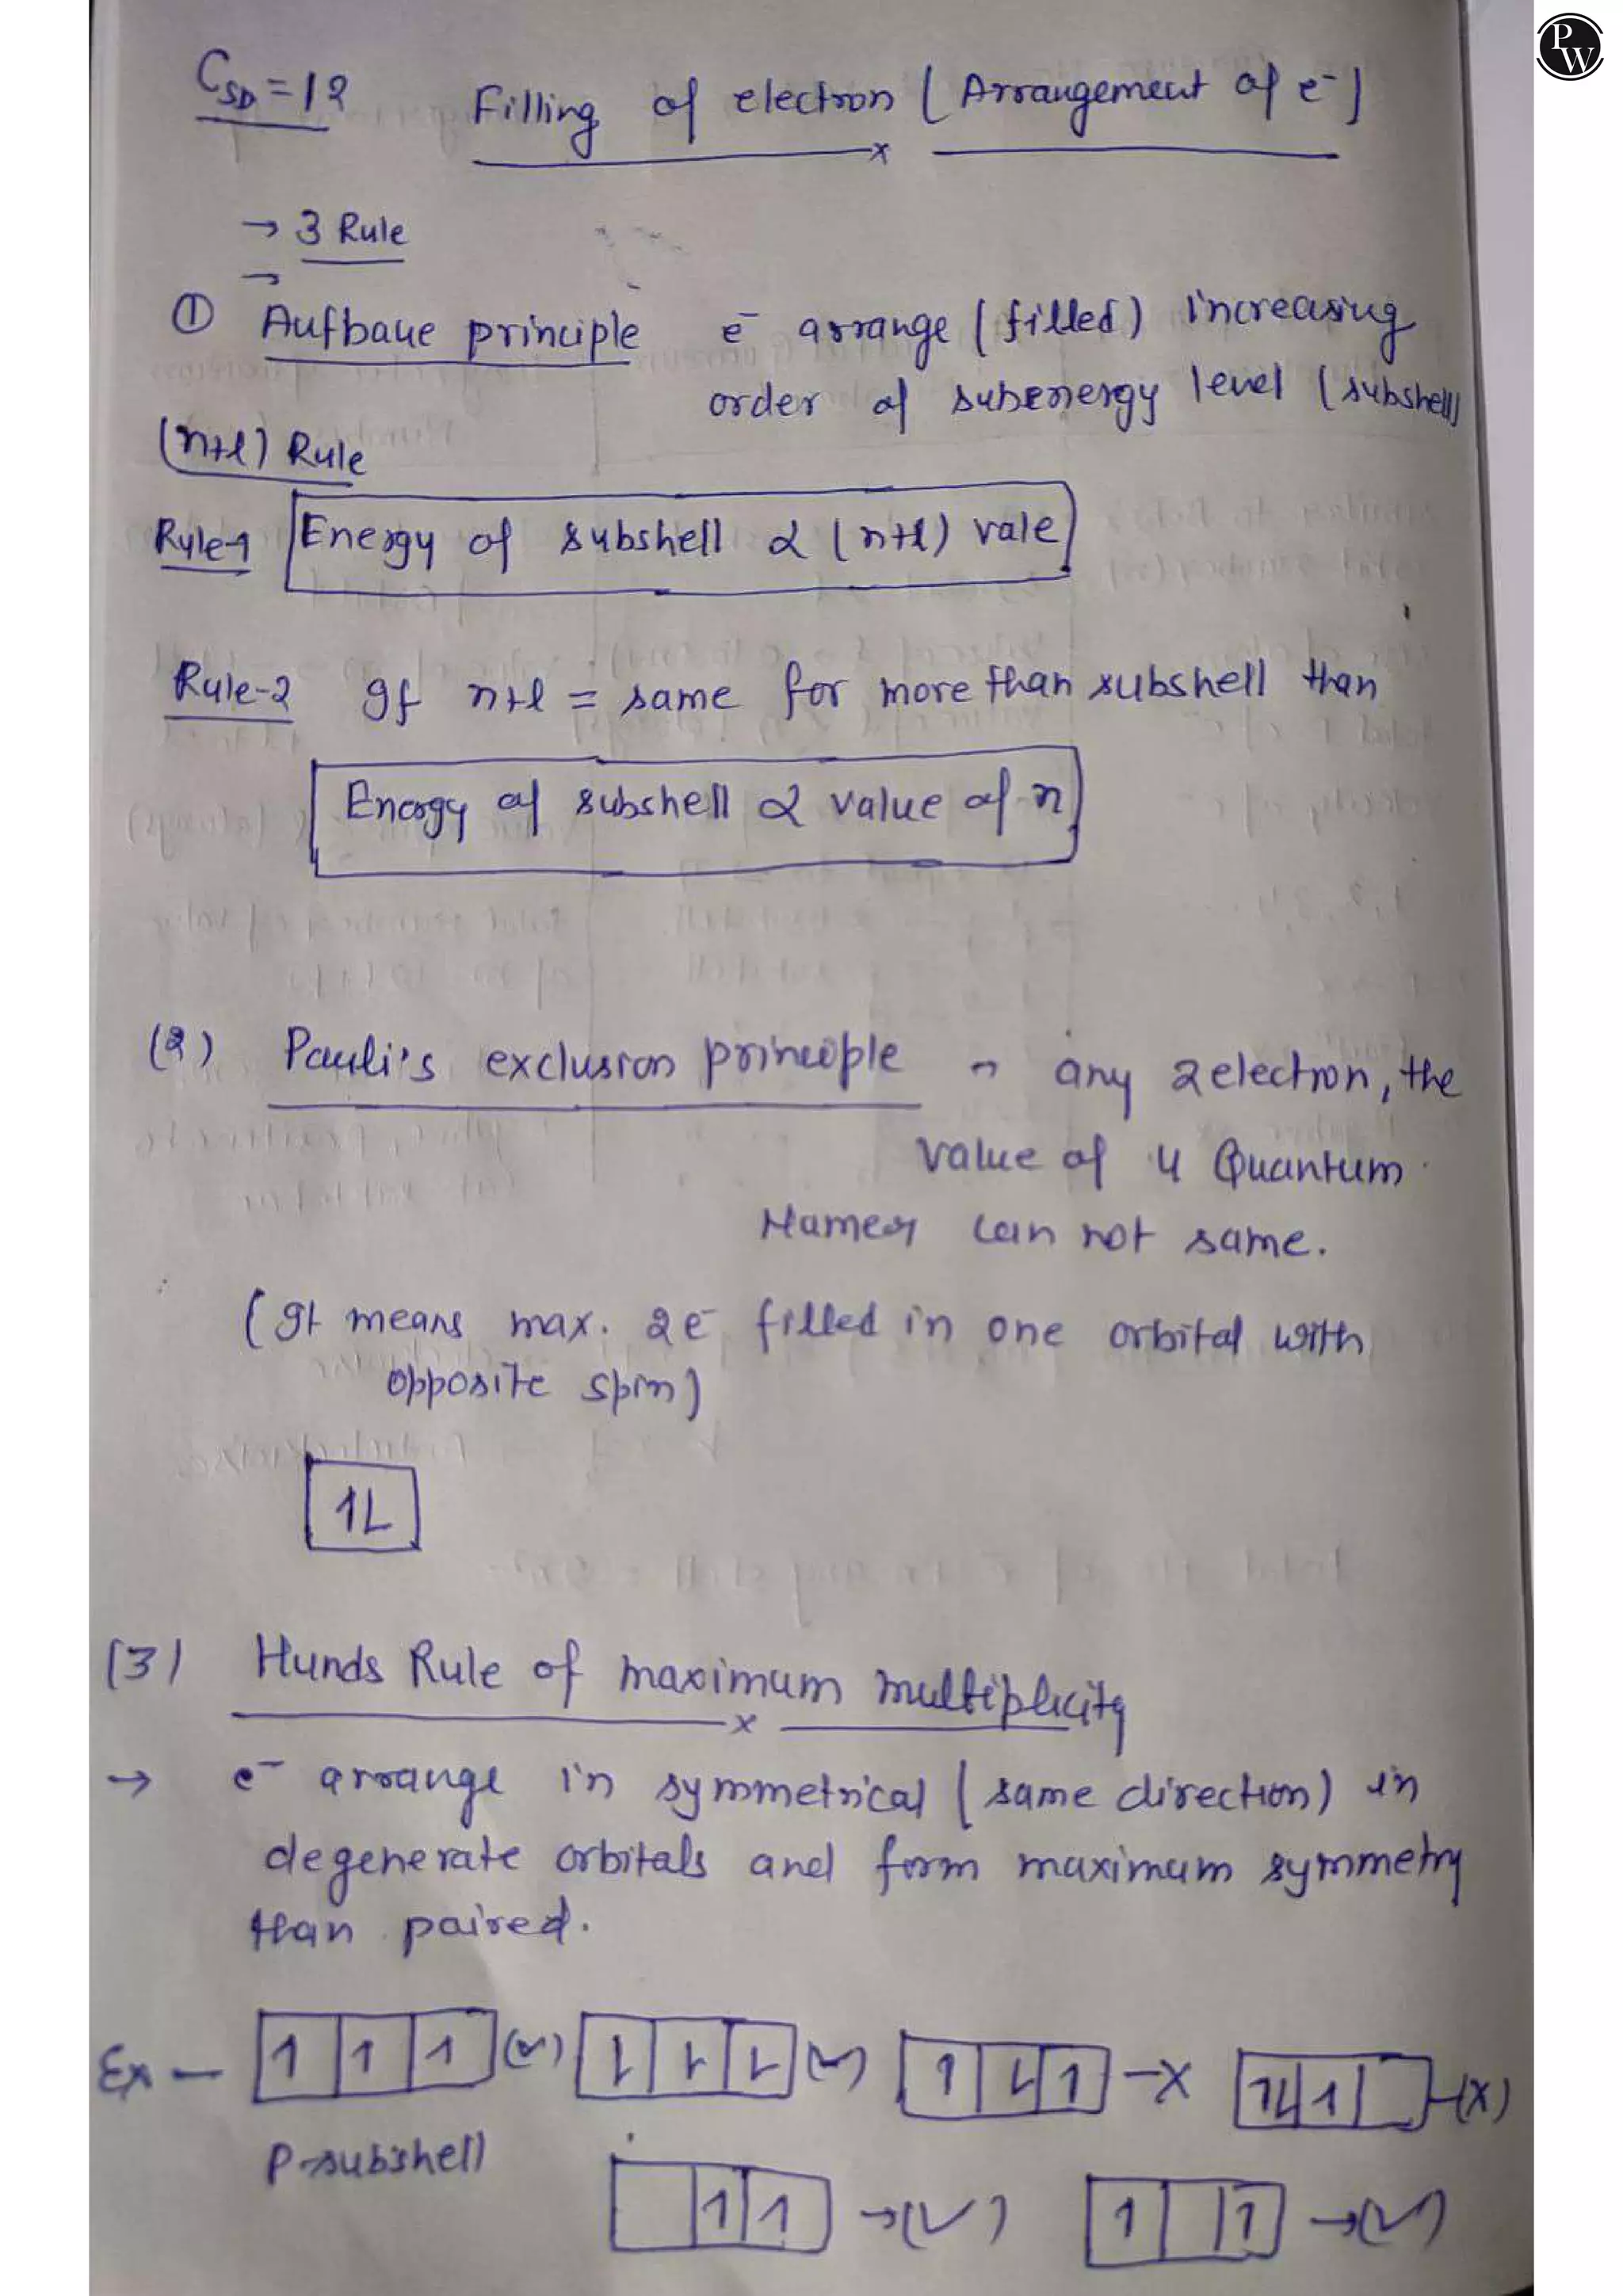 PW
C_SD = 12
Filling of electron (Arrangement of e⁻)
→ 3 Rule
→
① Aufbaue principle e⁻ arrange (filled) increasing
order of subenergy level (subshell)
(n+l) Rule
Rule-1 Energy of subshell α (n+l) vale
Rule-2 If n+l = same for more than subshell than
Energy of subshell α value of n
(2) Pauli's exclusion principle → any 2 electron, the
value of 4 Quantum
can not same.
(It means max. 2e⁻ filled in one orbital with
opposite spin)
1L
(3) Hunds Rule of maximum multiplicity
→ e⁻ arrange in symmetrical (same direction) in
degenerate orbitals and form maximum symmetry
than paired.
Ex - 1 1 1 (✓) L L L (✓) 1 L 1 -X 1L 1 -(X)
P-subshell
1 1 →(✓) 1 1 →(✓)